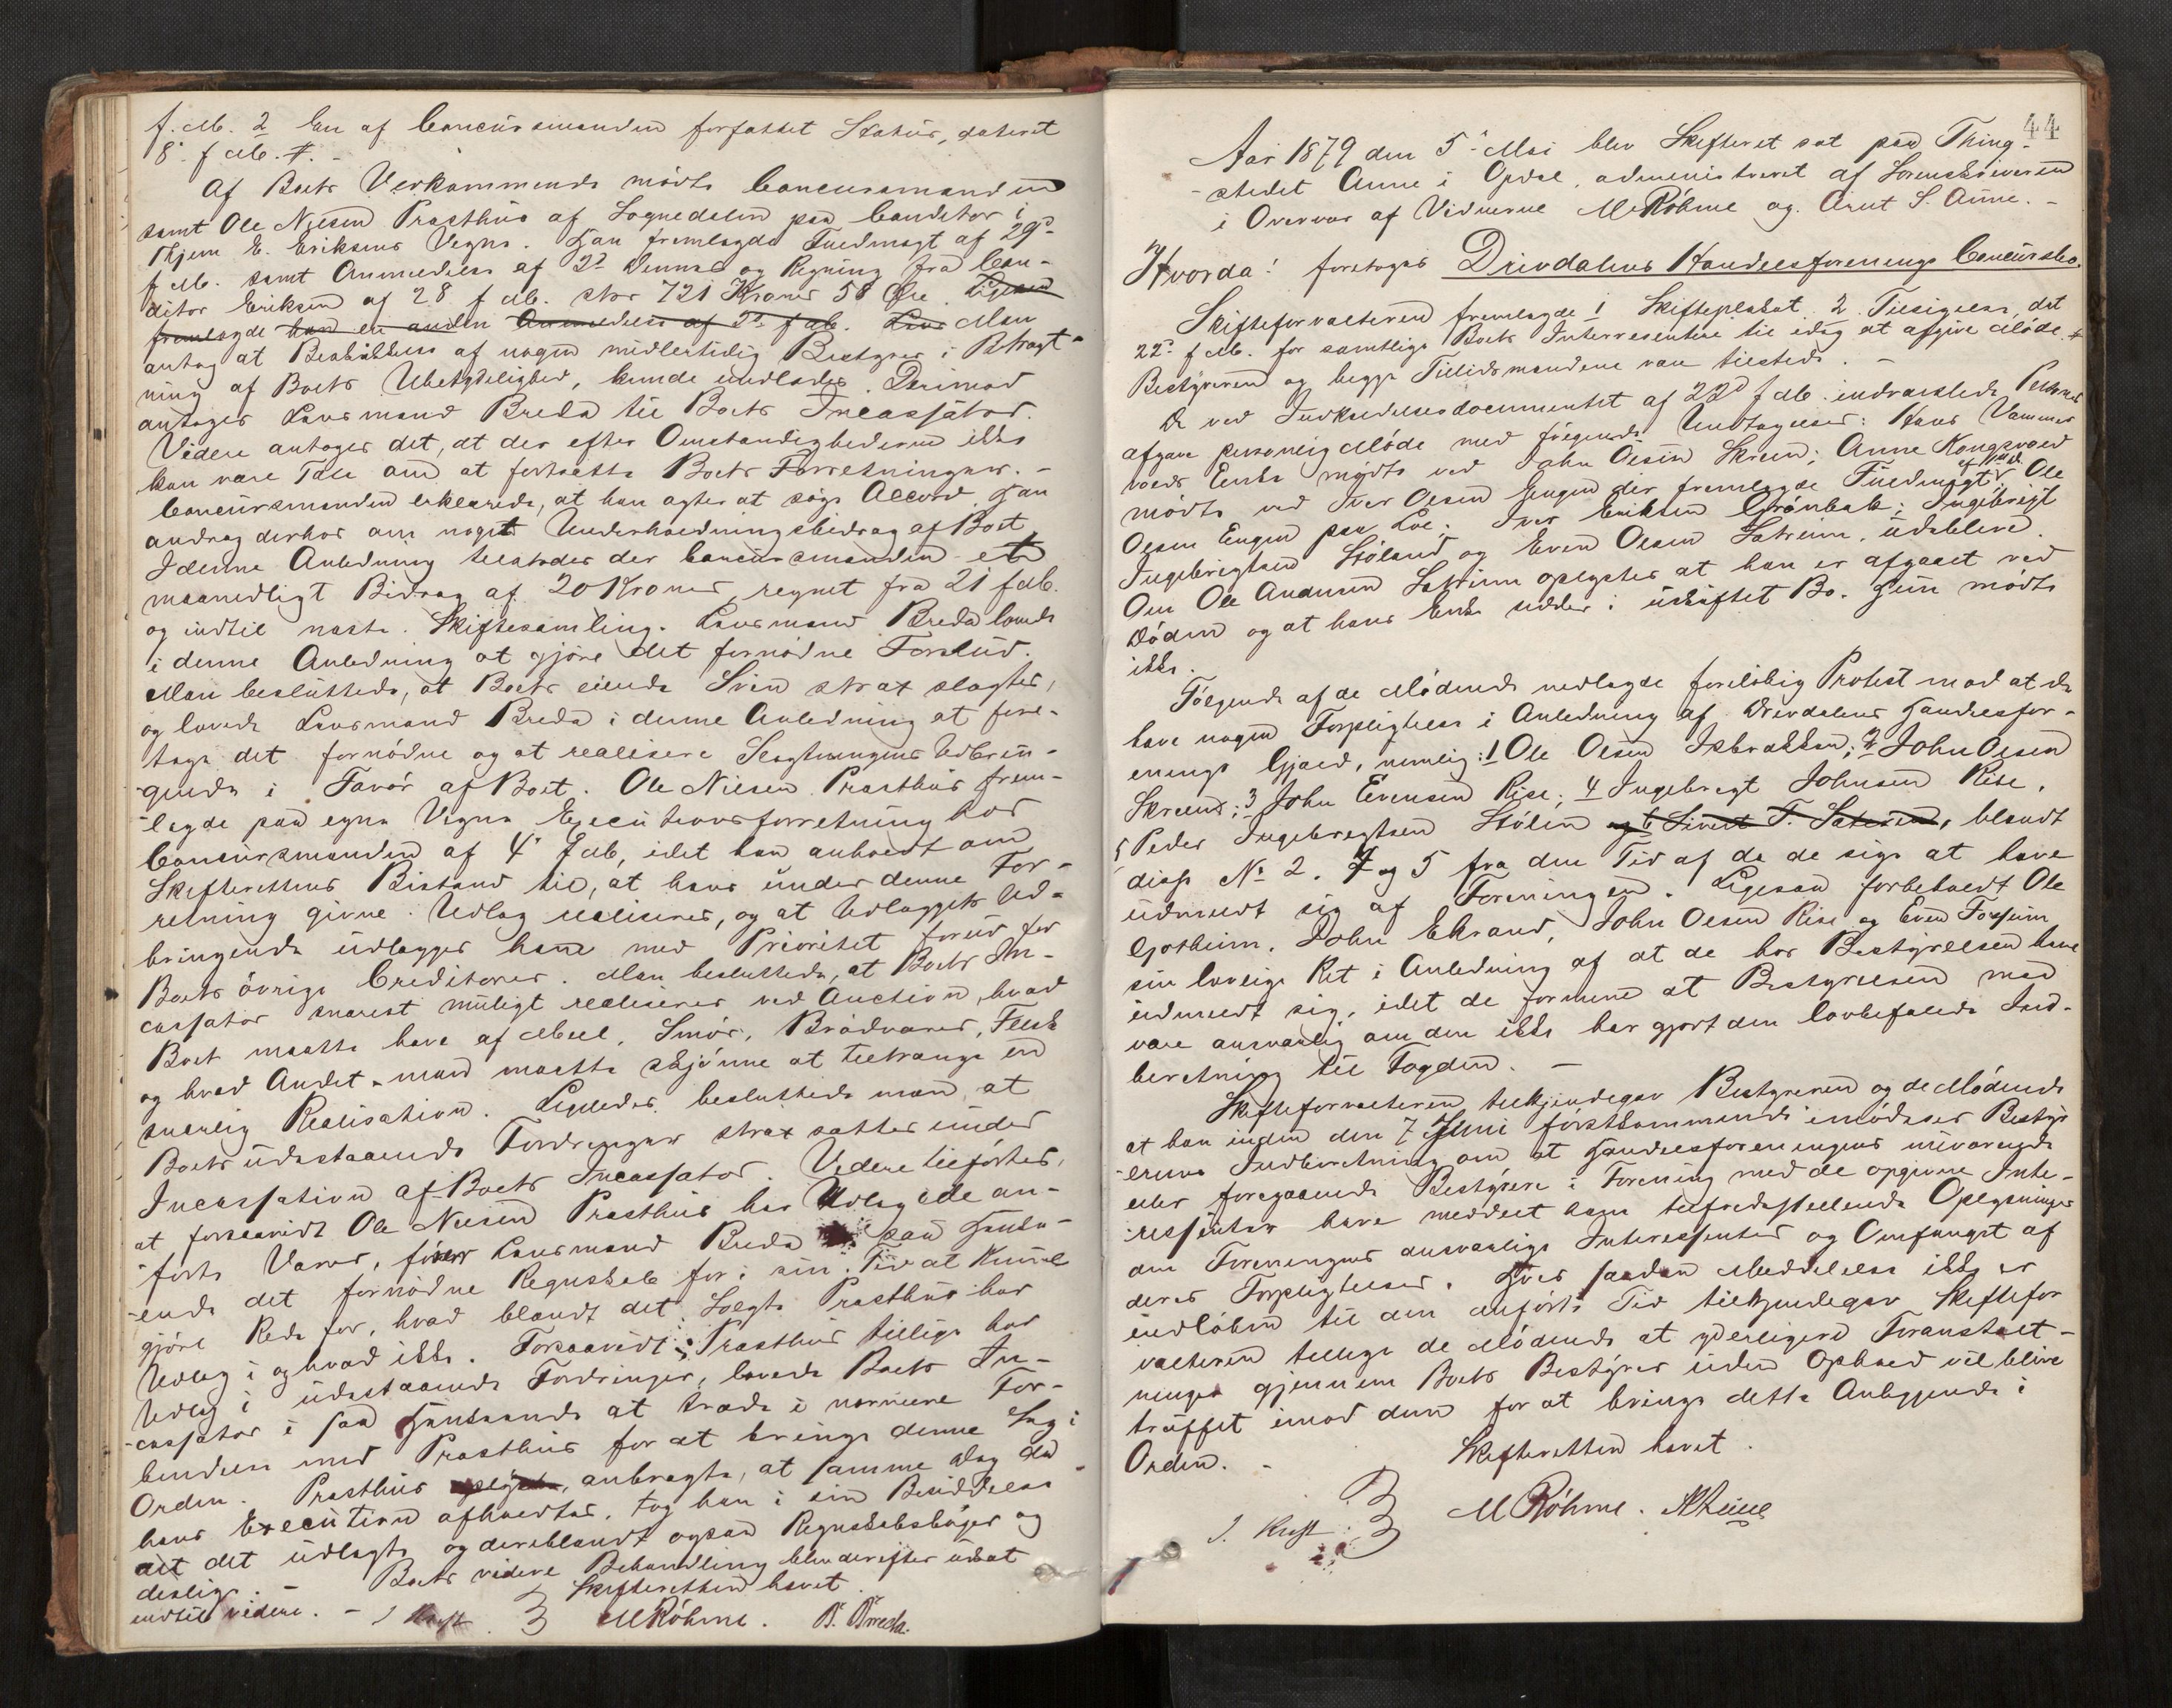 f. M. 2 En af Concursmanden forfattet Status, dateret
8' f M. 7. -
Af Boets Vedkommende mødte Concursmanden
samt Ole Nilsen Prasthus af Sognedalen paa Conditor i
Thjem E. Eriksens Vegne. Han fremlagde Fuldmagt af 29de
f M. samt Anmeldelse af 2d dennes og Regning fra Con-
ditor Eriksen af 28 f M. stor 721 Kroner 58 Øre. Ligesaa
fremlagde han en anden Anmeldelse af 2d f M. Man
antog at Beskikkelse af nogen midlertidig Bestyrer i Betragt-
ning af Boets Ubetydelighed, kunde undlades. Derimod
antoges Lensmand Breda til Boets Incassator.
Videre antoges det, at der efter Omstændighederne ikke
kan være Tale om at fortsætte Boets Forretninger. -
Concursmanden erklærede, at han agter at søge Accord. Han
androg derhos om noget Underholdningsbidrag af Boet
I denne Anledning tilstodes der Concursmanden et
maanedligt Bidrag af 20 Kroner, regnet fra 21 f M.
og indtil næste Skiftesamling. Lensmand Breda lovede
i denne Anledning at gjøre det fornødne Forskud.
Man besluttede, at Boets eiende Sviin strax slagtes,
og lovede Lensmand Breda i denne Anledning at fore-
tage det fornødne og at realisere Slagtningens Udbrin-
gende i Favør af Boet. Ole Nilsen Prasthus frem-
lagde paa egne Vegne Executionsforretning hos
Concursmanden af 4' f M, idet han anholdt om
Skifterettens Bistand til, at hans under denne For-
retning givne Udlag realiseres, og at Udlaggets Ud-
bringende udlægges ham med Prioritet forud for
Boets øvrige Creditorer. Man besluttede, at Boets In-
cassator snarest muligt realiserer ved Auction, hvad
Boet maatte have af Meel, Smør, Brødvarer, Flesk
og hvad Andet man maatte skjønne at tiltrænge en
snarlig Realisation. Ligeledes besluttede man at
Boets udestaaende Fordringer strax sættes under
Incassation af Boets Incassator. Videre tilførtes,
at forsaavidt Ole Nilsen Prasthus har Udlag i de an-
førte Varer, fører Lensmand Breda paa Henha-
ende det fornødne Regnskab for i sin Tid at kunne
gjøre Rede for, hvad blandt det Solgte Prasthus har
Udlag i og hvad ikke. Forsaavidt Prasthus tillige har
Udlag i udestaaende Fordringer, lovede Boets In-
cassator i saa Henseende at træde i nærmere For-
bindelse med Prasthus for at bringe denne Sag i
Orden. Prasthus anbragte, at samme Dag da
hans Execution afholdtes, tog han i sin Besiddelse
alt det udlagte og deriblandt ogsaa Regnskabsbøger og
deslige. - Boets videre Behandling blev derefter udsat
indtil videre. - Skifteretten hævet.
J. Kraft MRöhme. B. Breda.
44
Aar 1879 den 5te Mai blev Skifteret sat paa Thing-
stedet Aune i Opdal, administreret af Sorenskriveren
i Overvær af Vidnerne M Röhme og Arnt S. Aune. -
Hvorda! foretoges Drivdalens Handelsforenings Concursbo.
Skifteforvalteren fremlagde 1 Skifteplakat 2 Tilsigelse, dat
22de f M. for samtlige Boets Interessentere til idag at afgive Møde.
Bestyreren og begge Tillidsmændene vare tilstede. -
De ved Indkaldelsesdocumentet af 22d f M. indvarslede Personer
afgave personlig Møde med følgende Undtagelser: Hans Vammer
volds Enke mødte ved John Olsen Skreen; Anne Kongsvold
mødte ved Iver Olsen Engen der fremlagde Fuldmagt af M. d.; Ole
Olsen Engen paa Loe; Iver Eriksen Grönbak; Ingebrigt
Ingebrigtsen Stöland og Even Olsen Satrum, udebleve.
Om Ole Andersen Satrum oplystes at han er afgaaet ved
Døden og at hans Enke sidder i uskiftet Bo. Hun mødte
ikke.
Følgende af de Mødende nedlagde foreløbig Protest mod at de
have nogen Forpligtelse i Anledning af Drivdalens Handelsfor-
enings Gjæld, nemlig: 1 Ole Olsen Isbrekken; 2 John Olsen
Skreen; 3 John Evensen Rise; 4 Ingebrigt Johnsen Rise,
5 Peder Ingebrigtsen Stølen og 6 Sivert T. Sæteren, blandt
disse No 2. 4 og 5 fra den Tid af da de sige at have
udmeldt sig af Foreningen. Ligesaa forbeholdt Ole
Gotheim, John Ekrand, John Olsen Rise og Even Fossum
sin lovlige Ret i Anledning af at de hos Bestyrelsen have
udmeldt sig, idet de formene at Bestyrelsen maa
være ansvarlig om den ikke har gjort den lovbefalede Ind-
beretning til Fogden. -
Skifteforvalteren tilkjendegav Bestyreren og de Mødende
at han inden den 7 Juni førstkommende imødeser Besty-
rerens Indberetning om at Handelsforeningens nuværende
eller foregaaende Bestyrere i Forening med de opgivne Inte-
ressenter have meddelt ham tilfredsstillende Oplysninger
om Foreningens ansvarlige Interessenter og Omfanget af
deres Forpligtelser. Hvis saadan Meddelelse ikke er
indløben til den anførte Tid tilkjendegav Skiftefor
valteren tillige de Mødende at yderligere Foranstalt-
ninger gjennem Boets Bestyrer uden Ophold vil blive
truffet imod dem for at bringe dette Anliggende i
Orden. - Skifteretten hævet.
J. Kraft M Röhme. A Aune